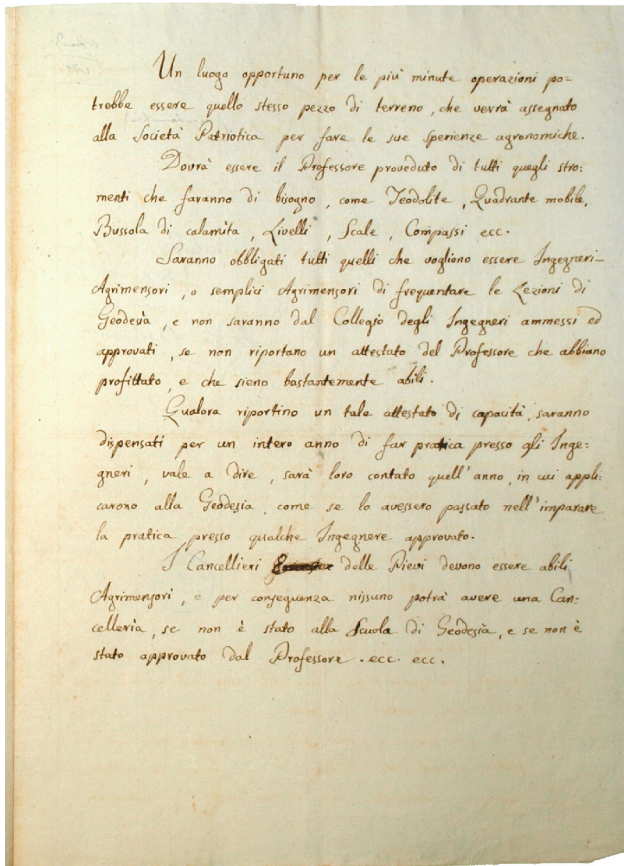 Un luogo opportuno per le più minute operazioni po-
trebbe essere quello stesso pezzo di terreno, che verrà assegnato
alla Società Patriotica per fare le sue sperienze agronomiche.
Dovrà essere il Professore proveduto di tutti quegli stro-
menti che faranno di bisogno, come Teodolite, Quadrante mobile,
Bussola di calamita, Livelli, Scale, Compassi ecc.
Saranno obbligati tutti quelli che vogliono essere Ingegneri-
Agrimensori, o semplici Agrimensori di frequentare le Lezioni di
Geodesìa, e non saranno dal Collegio degli Ingegneri ammessi ed
approvati, se non riportano un attestato del Professore che abbiano
profittato, e che sieno bastantemente abili.
Qualora riportino un tale attestato di capacità, saranno
dispensati per un intero anno di far pratica presso gli Inge-
gneri, vale a dire, sarà loro contato quell'anno, in cui appli-
carono alla Geodesìa, come se lo avessero passato nell'imparare
la pratica presso qualche Ingegnere approvato.
I Cancellieri delle Pievi devono essere abili
Agrimensori, e per conseguenza nissuno potrà avere una Can-
cellerìa, se non è stato alla Scuola di Geodesìa, e se non è
stato approvato dal Professore. ecc. ecc.